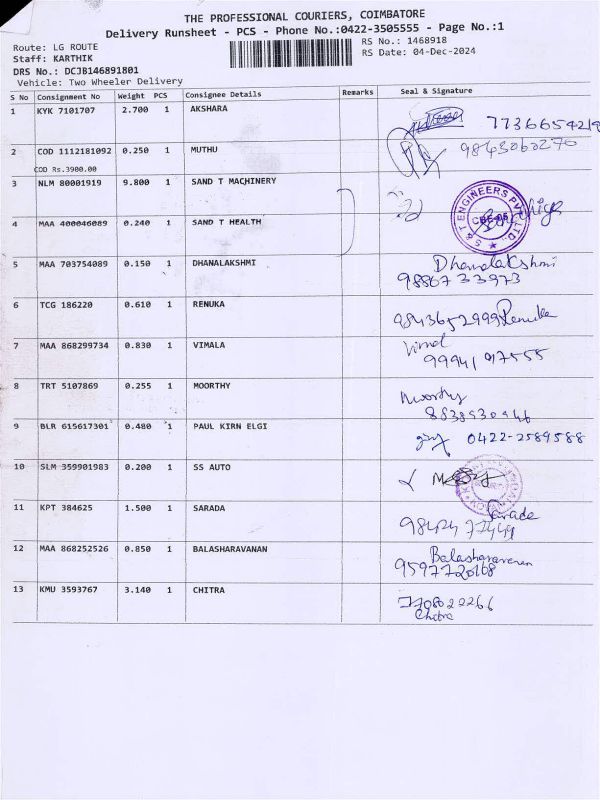 THE PROFESSIONAL COURIERS, COIMBATORE
Delivery Runsheet - PCS - Phone No.:0422-3505555 - Page No.:1
Route: LG ROUTE RS No.: 1468918
Staff: KARTHIK RS Date: 04-Dec-2024
DRS No.: DCJB146891801
Vehicle: Two Wheeler Delivery
S No Consignment No Weight PCS Consignee Details Remarks Seal & Signature
1 KYK 7101707 2.700 1 AKSHARA
2 COD 1112181092 0.250 1 MUTHU 9843060270
COD Rs.3900.00
3 NLM 80001919 9.800 1 SAND T MACHINERY
S & T ENGINEERS PVT LTD
4 MAA 400046089 0.240 1 SAND T HEALTH
5 MAA 703754089 0.150 1 DHANALAKSHMI Dhanalakshmi
9886733973
6 TCG 186220 0.610 1 RENUKA 9843652999 Renuka
7 MAA 868299734 0.830 1 VIMALA Vimal
99941 97555
8 TRT 5107869 0.255 1 MOORTHY Moorthy
9 BLR 615617301 0.480 1 PAUL KIRN ELGI 0422-2589588
10 SLM 359901983 0.200 1 SS AUTO
11 KPT 384625 1.500 1 SARADA Sarada
12 MAA 868252526 0.850 1 BALASHARAVANAN Balasharavanan
9597720168
13 KMU 3593767 3.140 1 CHITRA 7708022266
Chitra